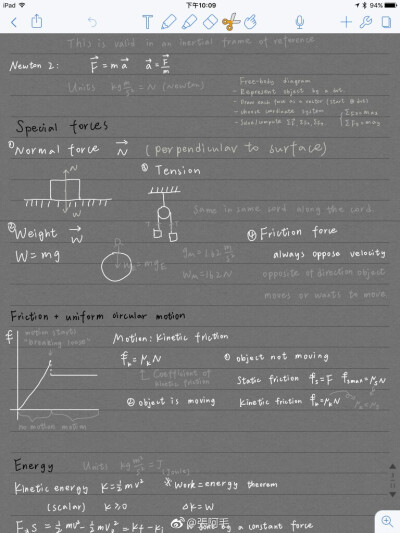 iPad
下午10:09
94%
This is valid in an inertial frame of reference
Newton 2: F⃗ = m a⃗ a⃗ = F⃗/m
Units kg m/s² = N (Newton)
Free-body diagram
- Represent object by a dot.
- Draw each force as a vector (start @ dot)
- choose coordinate system
Special forces
①Normal force N⃗ (perpendicular to surface)
N
W
③ Tension
T T
Same in same cord along the cord.
②Weight W⃗
W = mg
④ Friction force
always oppose velocity
opposite of direction object
moves or wants to move
Friction + uniform circular motion
f
motion starts
"breaking loose"
no motion motion
Motion: Kinetic friction
fₖ = μₖN
Coefficient of
kinetic friction
① object not moving
Static friction fs = F fsmax = μsN
② object is moving Kinetic friction fₖ = μₖN
Energy Units kg m²/s² = J (Joule)
Kinetic energy K = ½mv² * Work-energy theorem
(scalar) K ≥ 0 ΔK = W
½mv² - ½mv₀² = Kf - Ki
by a constant force
@張阿毛